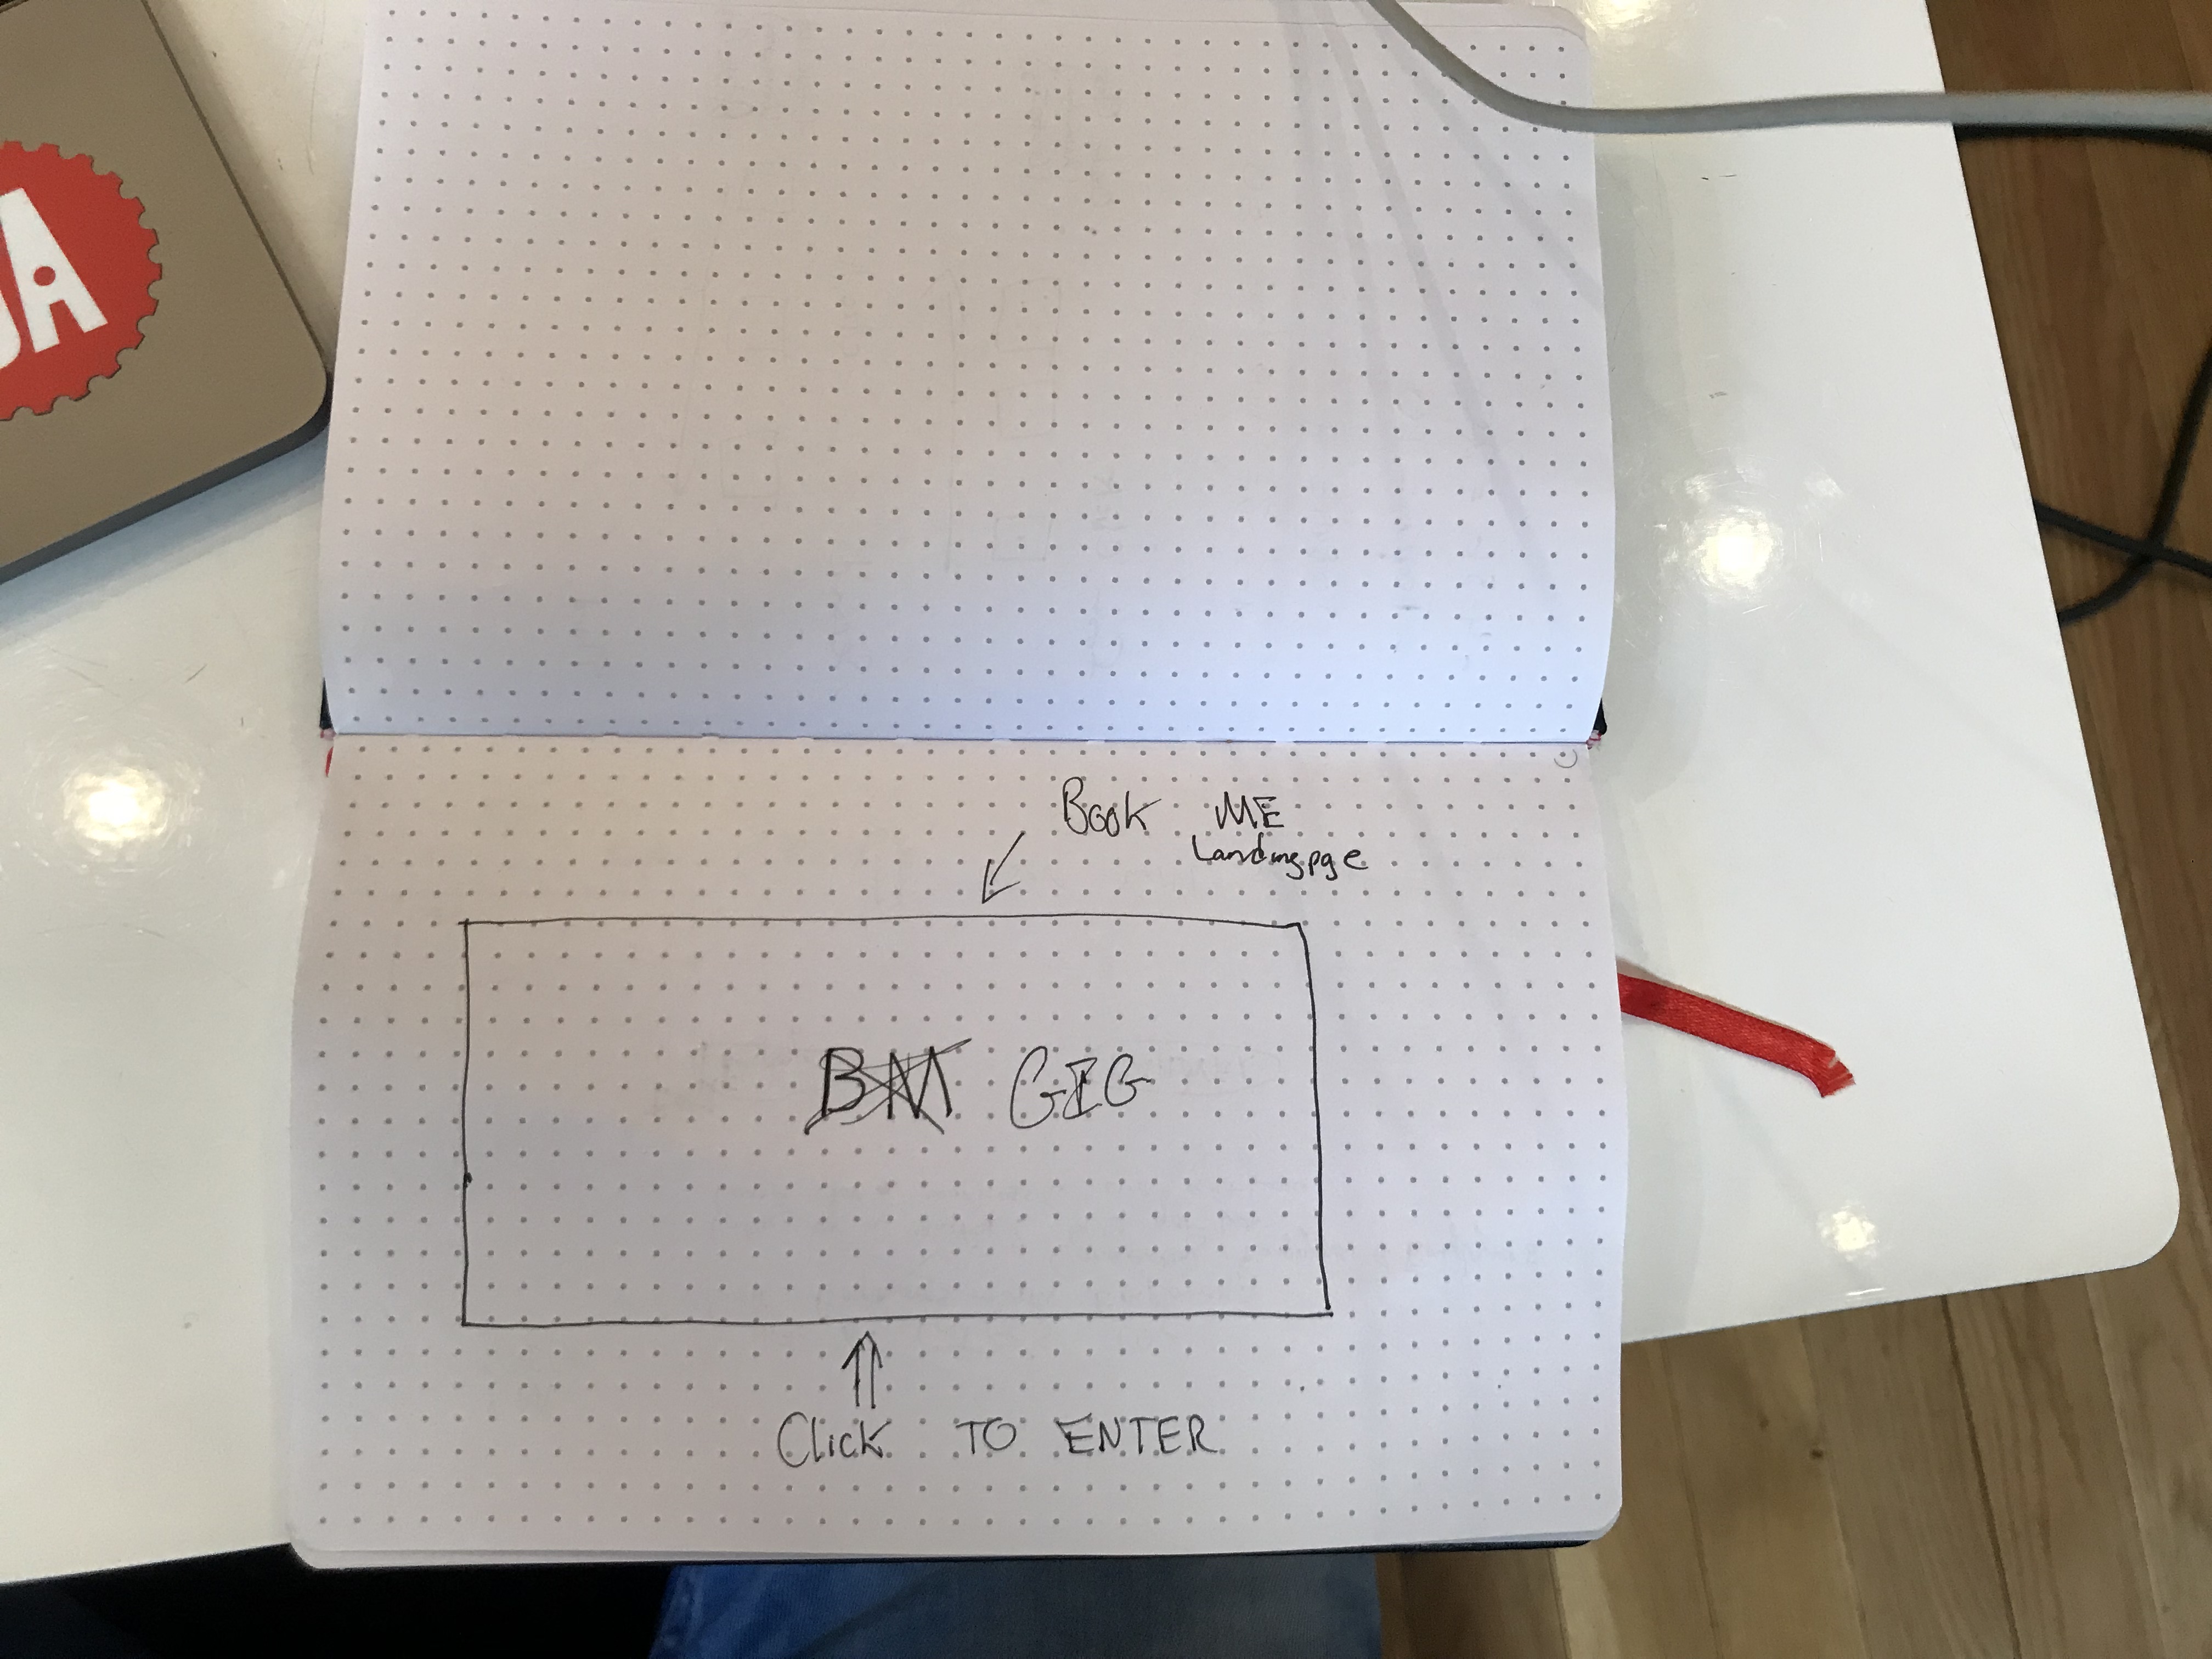 Book ME
Landingpge
GIG
Click TO ENTER